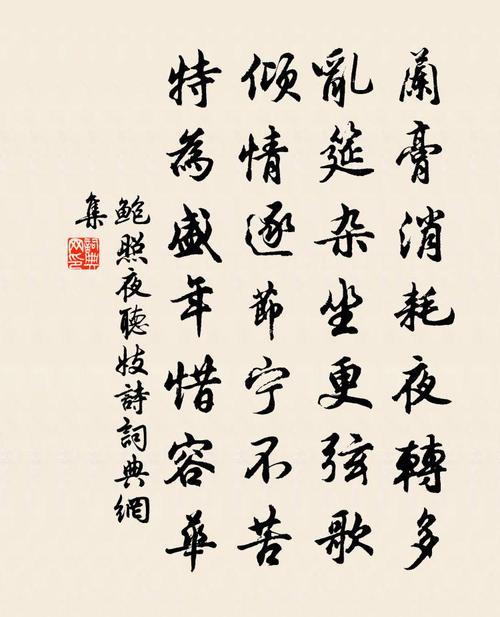 蘭膏消耗夜轉多
亂筵杂坐更弦歌
倾情逐節宁不苦
特為盛年惜容華
鲍照夜聽妓詩詞典網
集
詞典网印